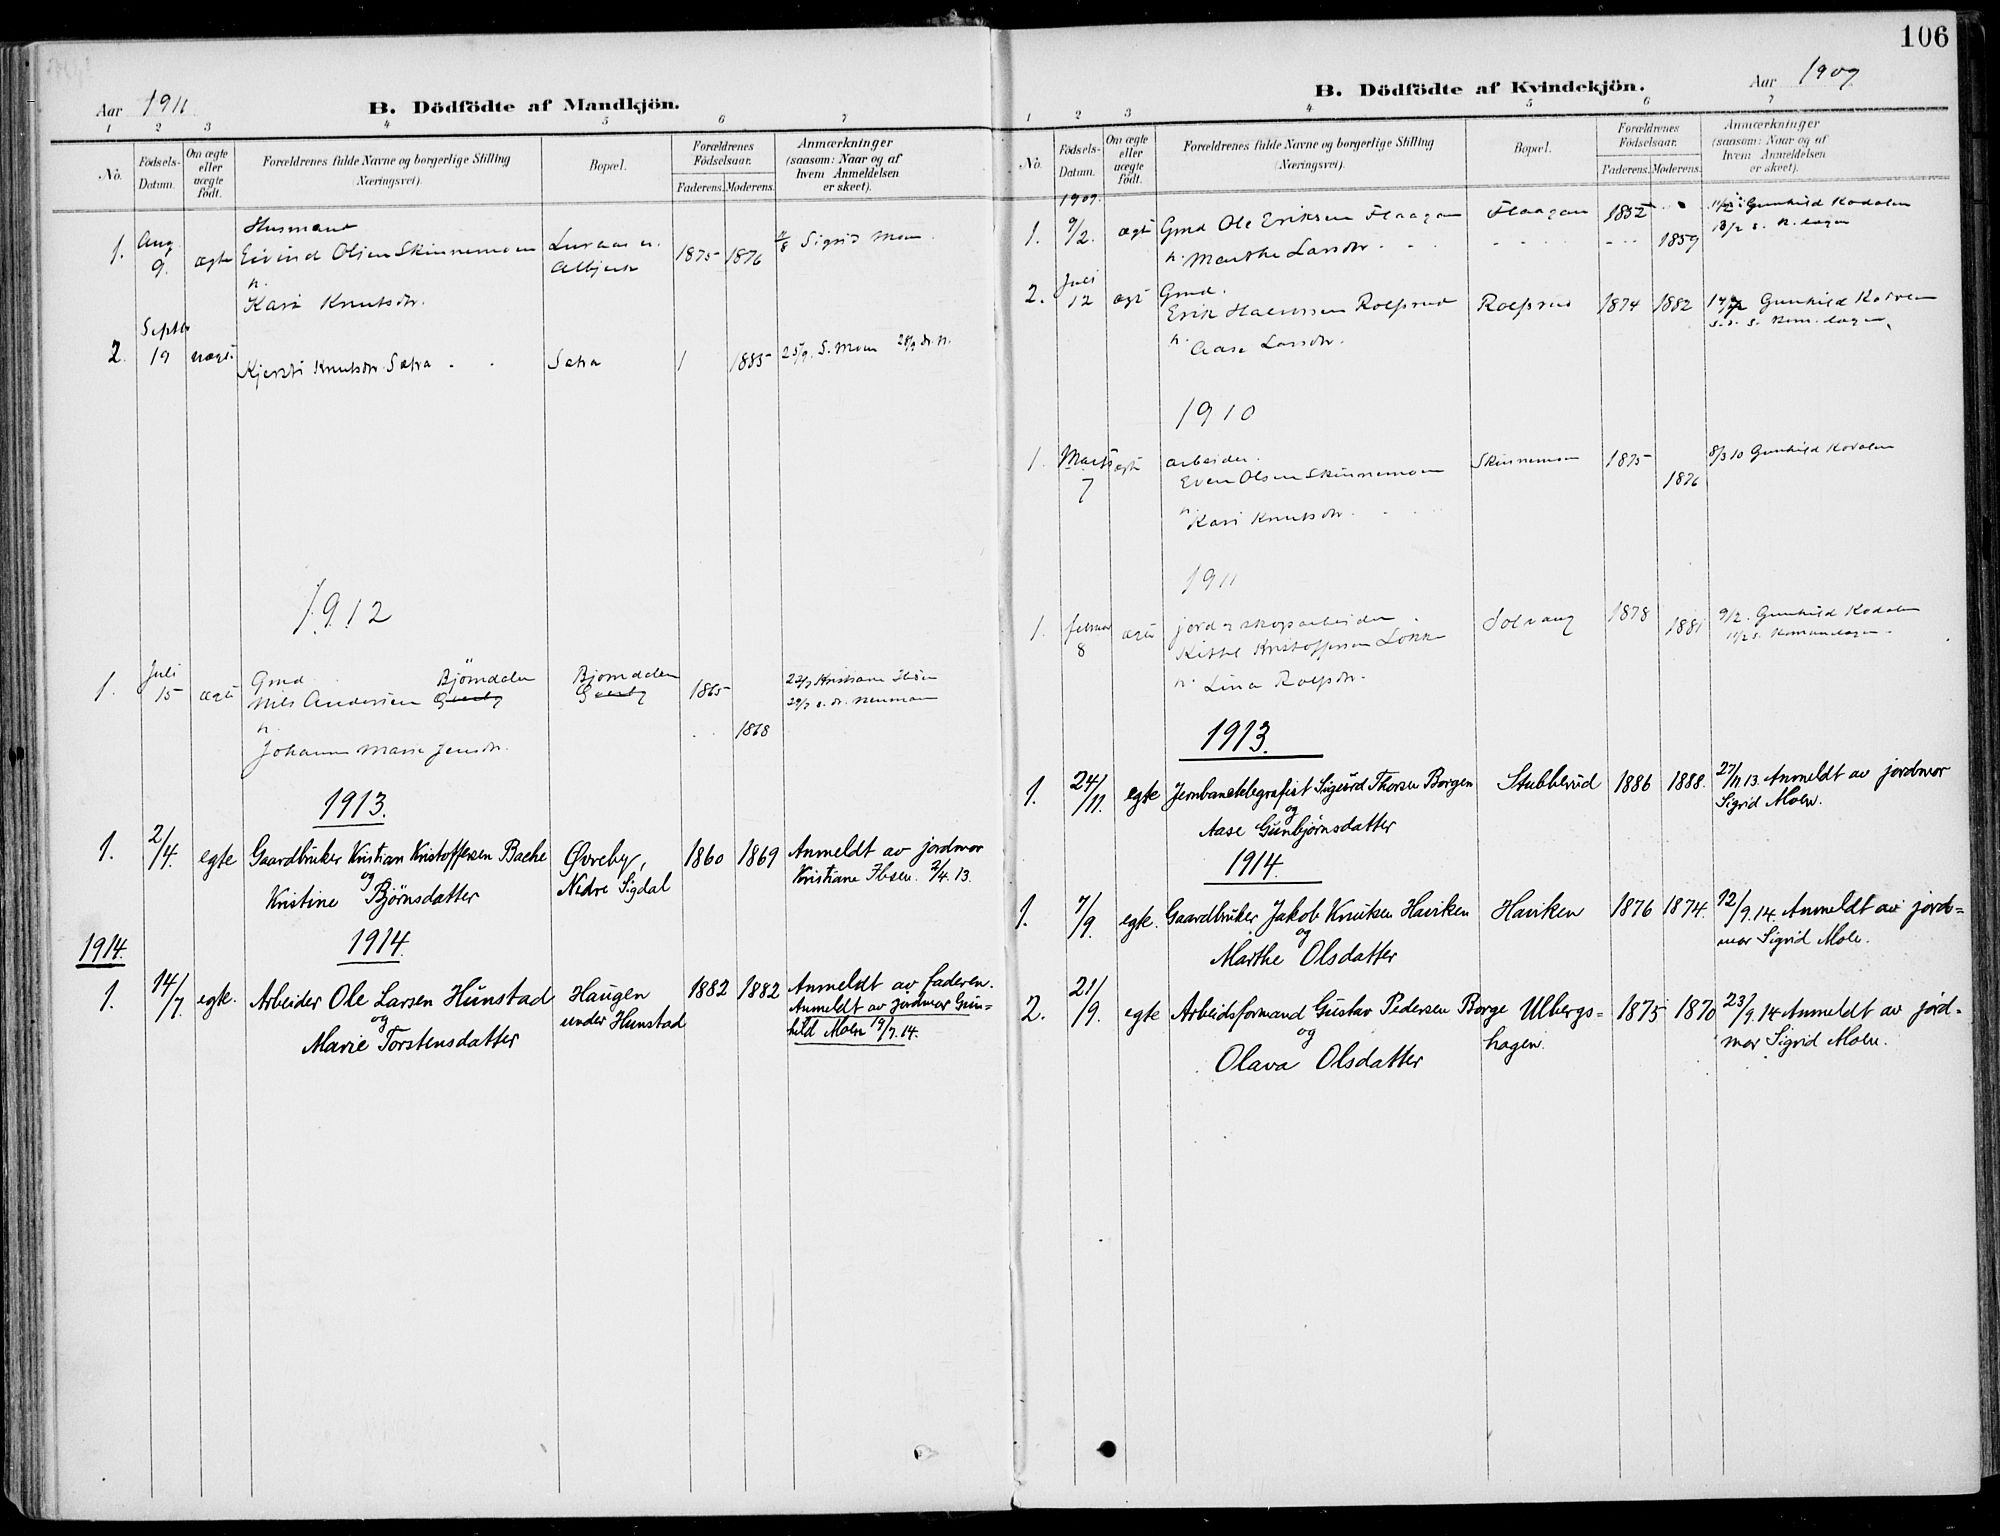 106
Aar 1911
B. Dödfödte af Mandkjön.
1 2 3 4 5 6 7
No.
Födsels-Datum.
Om ægte eller uægte födt.
Forældrenes fulde Navne og borgerlige Stilling
(Næringsvei).
Bopæl.
Forældrenes Födselsaar.
Faderens. Moderens.
Anmærkninger
(saasom: Naar og af
hvem Anmeldelsen
er skeet).
Husmand
1. Aug 9. ægte Eivind Olsen Skinnemoen 1875 1876 Sigrid Moen
Kari Knutsdtr.
2. Septbr 19 uægte Kjersti Knutsdtr. Satra Satra 1885 25/9. S. Moen
1912
1. Juli 15 ægte Gmd. Björndalen Bjorndalen
Nils Andersen 1865 Kristiane Ibsen
1868
Johanne Marie Jensdtr.
1913.
1. 2/4. egte Gaardbruker Kristian Kristoffersen Bache Øvreby, 1860 1869 Anmeldt av jordmor
og Nedre Sigdal Kristiane Ibsen. 2/4. 13.
Kristine Bjørnsdatter
1914. 1914.
1. 14/7. egte. Arbeider Ole Larsen Hunstad Haugen 1882 1882 Anmeldt av faderen.
og under Hunstad Anmeldt av jordmor Gun-
Marie Torstensdatter hild Moen 19/7. 14.
Aar 1909
B. Dödfödte af Kvindekjön.
1 2 3 4 5 6 7
No.
Födsels-Datum.
Om ægte eller uægte födt.
Forældrenes fulde Navne og borgerlige Stilling
(Næringsvei).
Bopæl.
Forældrenes Födselsaar.
Faderens. Moderens.
Anmærkninger
(saasom: Naar og af
hvem Anmeldelsen
er skeet).
1909.
1. 9/2. ægte Gmd Ole Eriksen Flaagan Flaagan 1852 Gunhild Kodalen
Marthe Larsdtr. 1859
2. Juli 12 ægte Gmd.
Erik Rolfsrud Rolfsrud 1874 1882 Gunhild
Aase Larsdtr.
1910
1. Marts 7 ægte arbeider. Skinnemoen 1875 8/3 10 Gunhild Kodalen
Even Olsen Skinnemoen 1876
Kari Knutsdtr.
1911
1. februar 8 ægte jord og skogarbeider Solvang 1878 1881 9/2. Gunhild Kodalen
Kittil Kristoffersen
Lina Rolfsdtr.
1913.
1. 24/11. egte Jernbanetelegrafist Sigurd Thorsen Borgen Stubberud 1886 1888. 27/11. 13. Anmeldt av jordmor
og Sigrid Moen.
Aase Gunbjørnsdatter
1914.
1. 7/9. egte. Gaardbruker Jakob Knutsen Haviken Haviken 1876 1874. 12/9. 14. Anmeldt av jord-
og mor Sigrid Moen.
Marthe Olsdatter
2. 21/9. egte Arbeidsformand Gustav Pedersen Borge Ulbergs- 1875 1870 23/9. 14 Anmeldt av jord-
og hagen. mor Sigrid Moen.
Olava Olsdatter